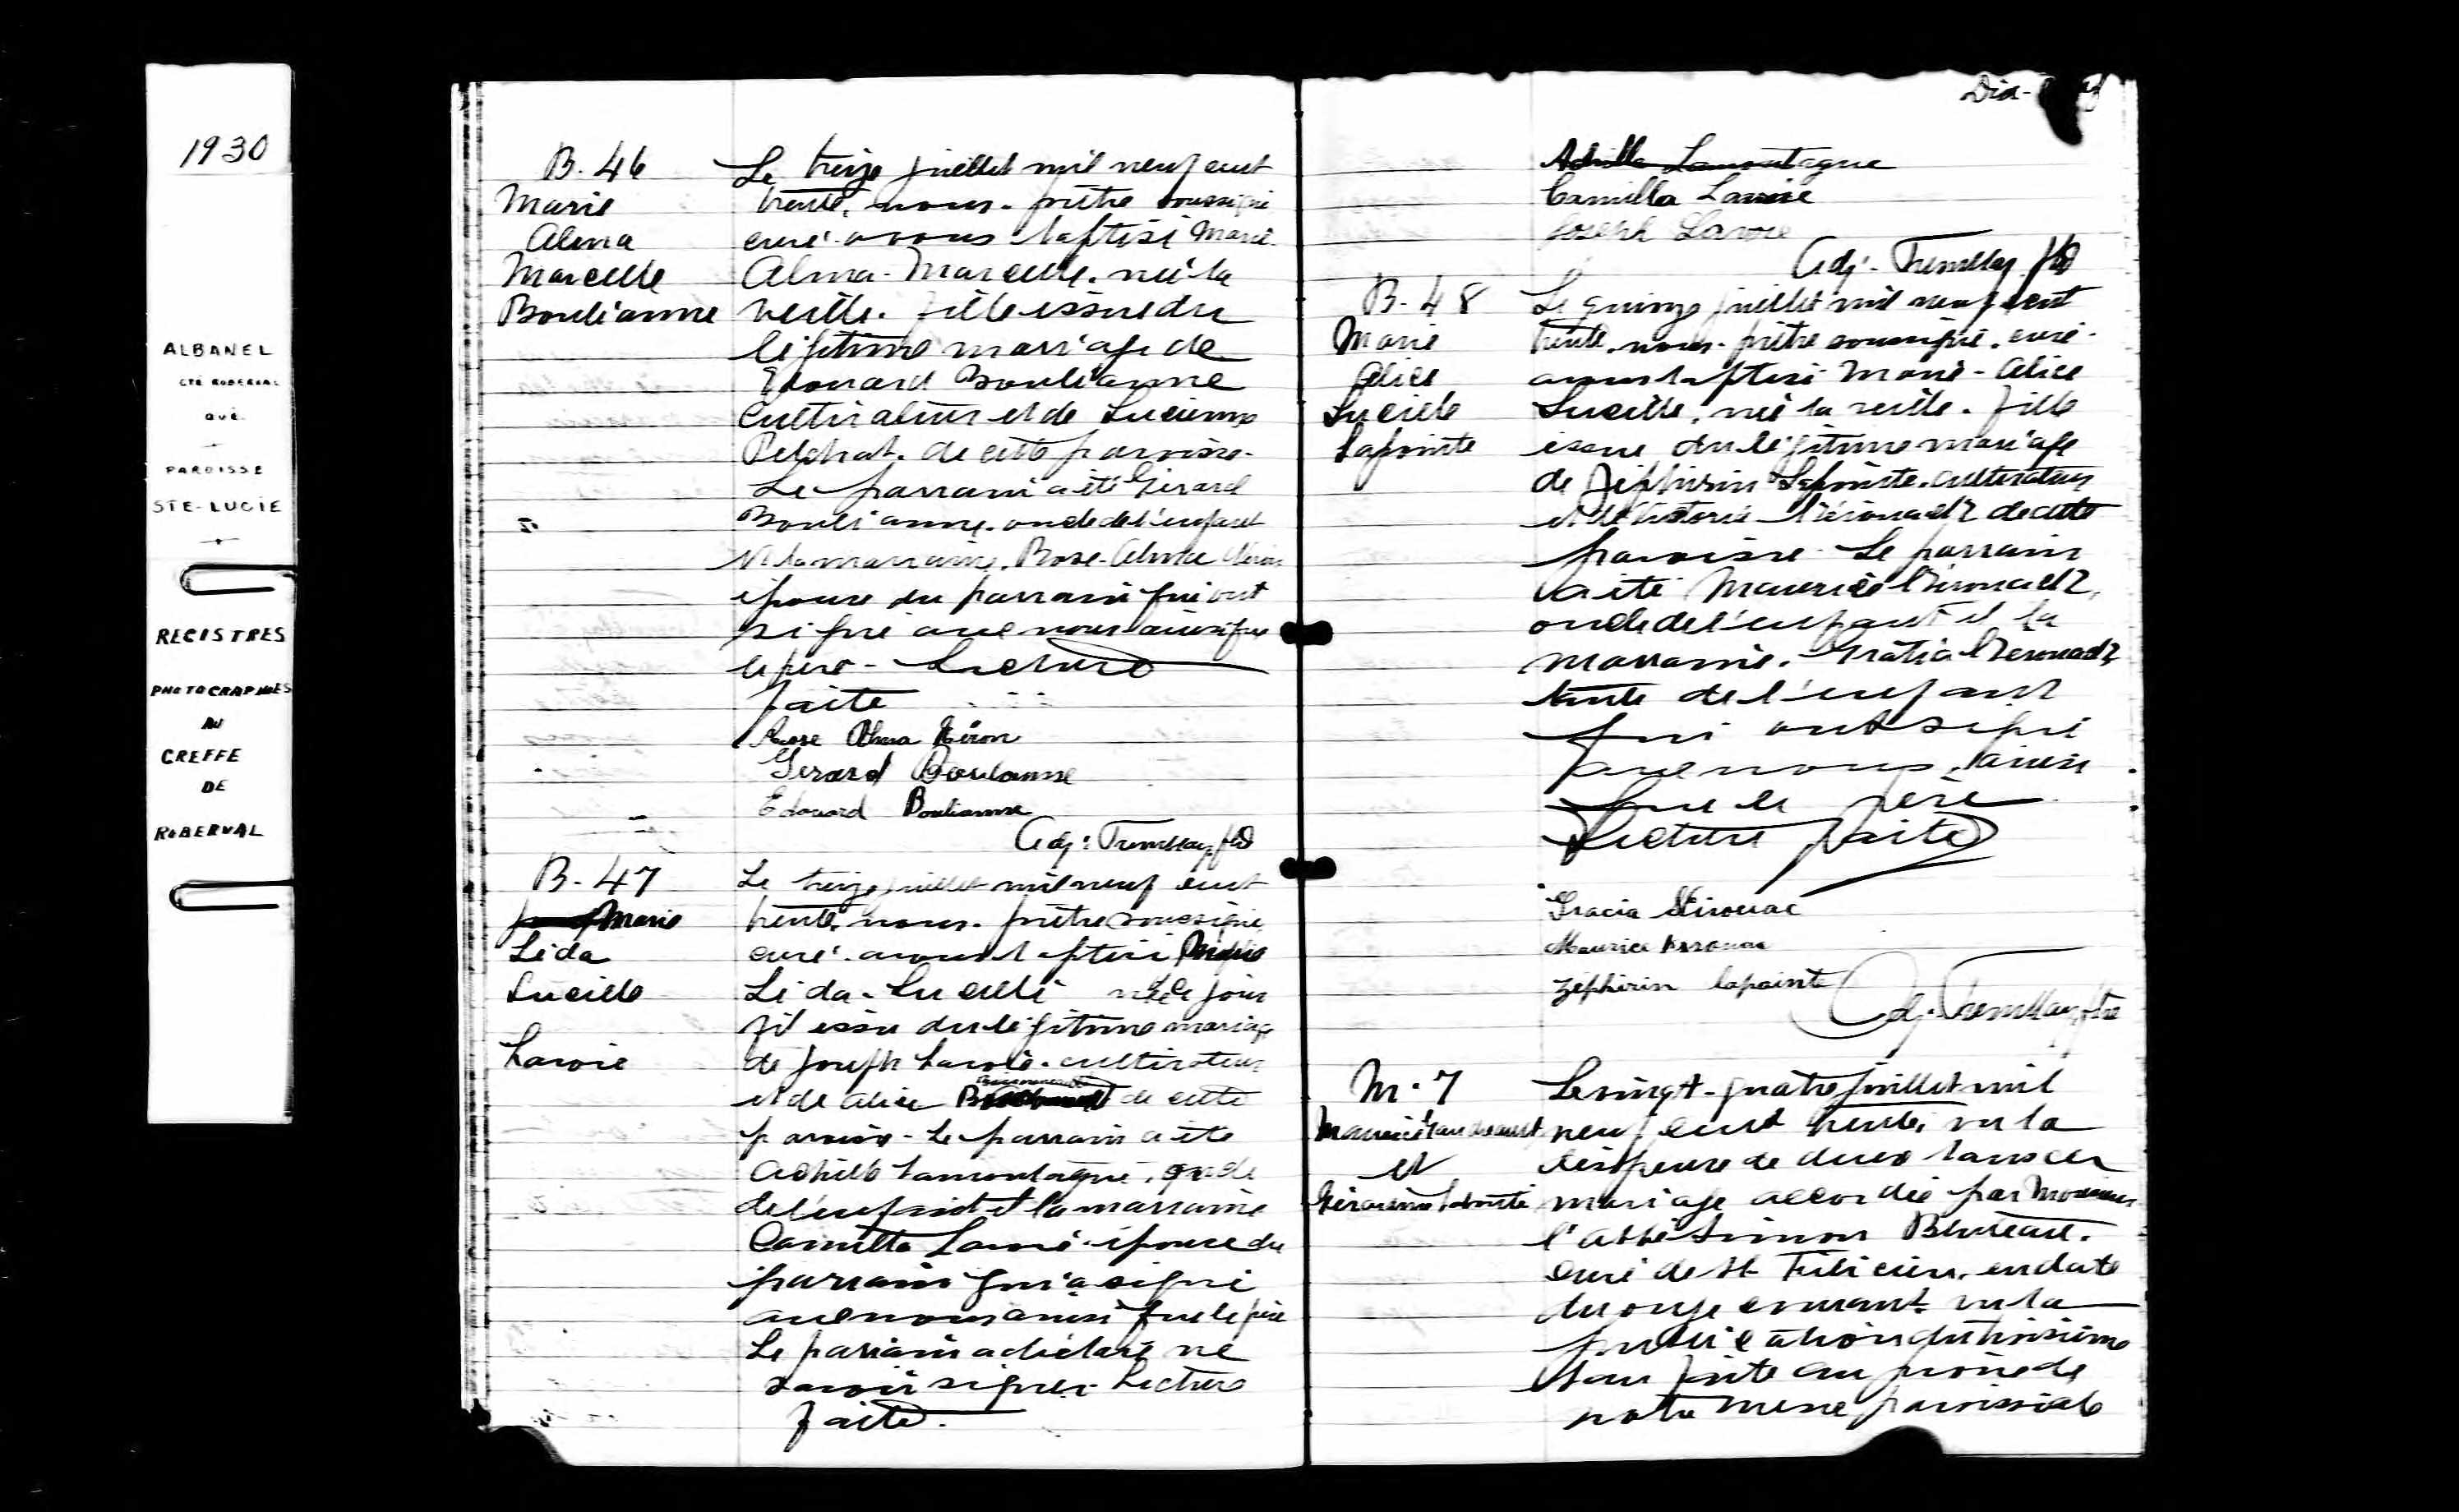 1930
ALBANEL
CTÉ ROBERVAL
QUÉ.
PAROISSE
STE-LUCIE
REGISTRES
PHOTOGRAPHIÉS
AU
GREFFE
DE
ROBERVAL
B. 46
Marie
Alma
Marcelle
Boulianne
Le treize juillet mil neuf cent
trente, nous, prêtre soussigné
curé avons baptisé Marie
Alma-Marcelle, née la
veille, fille issue du
légitime mariage de
Edouard Boulianne
cultivateur et de Lucienne
Pelchat de cette paroisse.
Le parrain a été Gérard
Boulianne, oncle de l'enfant
et la marraine, Rose-Alma Néron
épouse du parrain qui ont
signé avec nous ainsi que
le père - Lecture
faite
Rose Alma Néron
Gerard Boulianne
Edouard Boulianne
Adj: Tremblay, ptre
B. 47
Marie
Lida
Lucille
Lavoie
Le treize juillet mil neuf cent
trente, nous, prêtre soussigné
curé avons baptisé Marie
Lida-Lucille née ce jour
fil issu du légitime mariage
de Joseph Lavoie, cultivateur
et de Alice de cette
paroisse - Le parrain a été
Achille Lamontagne, oncle
de l'enfant et la marraine
Camilla Lavoie épouse du
parrain qui a signé
avec nous ainsi que le père
Le parrain a déclaré ne
savoir signer Lecture
faite.
Dix-
Achille Lamontagne
Camilla Lavoie
Joseph Lavoie
Adj. Tremblay ptre
B. 48
Marie
Alice
Lucille
Lapointe
Le quinze juillet mil neuf cent
trente, nous, prêtre soussigné, curé
avons baptisé Marie-Alice
Lucille, née la veille, fille
issue du légitime mariage
de Zéphirin Lapointe, cultivateur
et de Victoria Kérouack de cette
paroisse. Le parrain
a été Maurice Kérouack,
oncle de l'enfant et la
marraine, Gratia Kerouack
tante de l'enfant
qui ont signé
avec nous, ainsi
que le père
Lecture faite
Gracia Kirouac
Maurice Kirouac
Zéphirin Lapointe
Adj. Tremblay, ptre
M. 7
et
Le vingt-quatre juillet mil
neuf cent trente, vu la
dispense de deux bans de
mariage accordée par Monsieur
l'abbé Simon Bluteau,
curé de St Félicien, en date
du onze courant, vu la
publication du troisième
ban faite au prône de
notre messe paroissiale